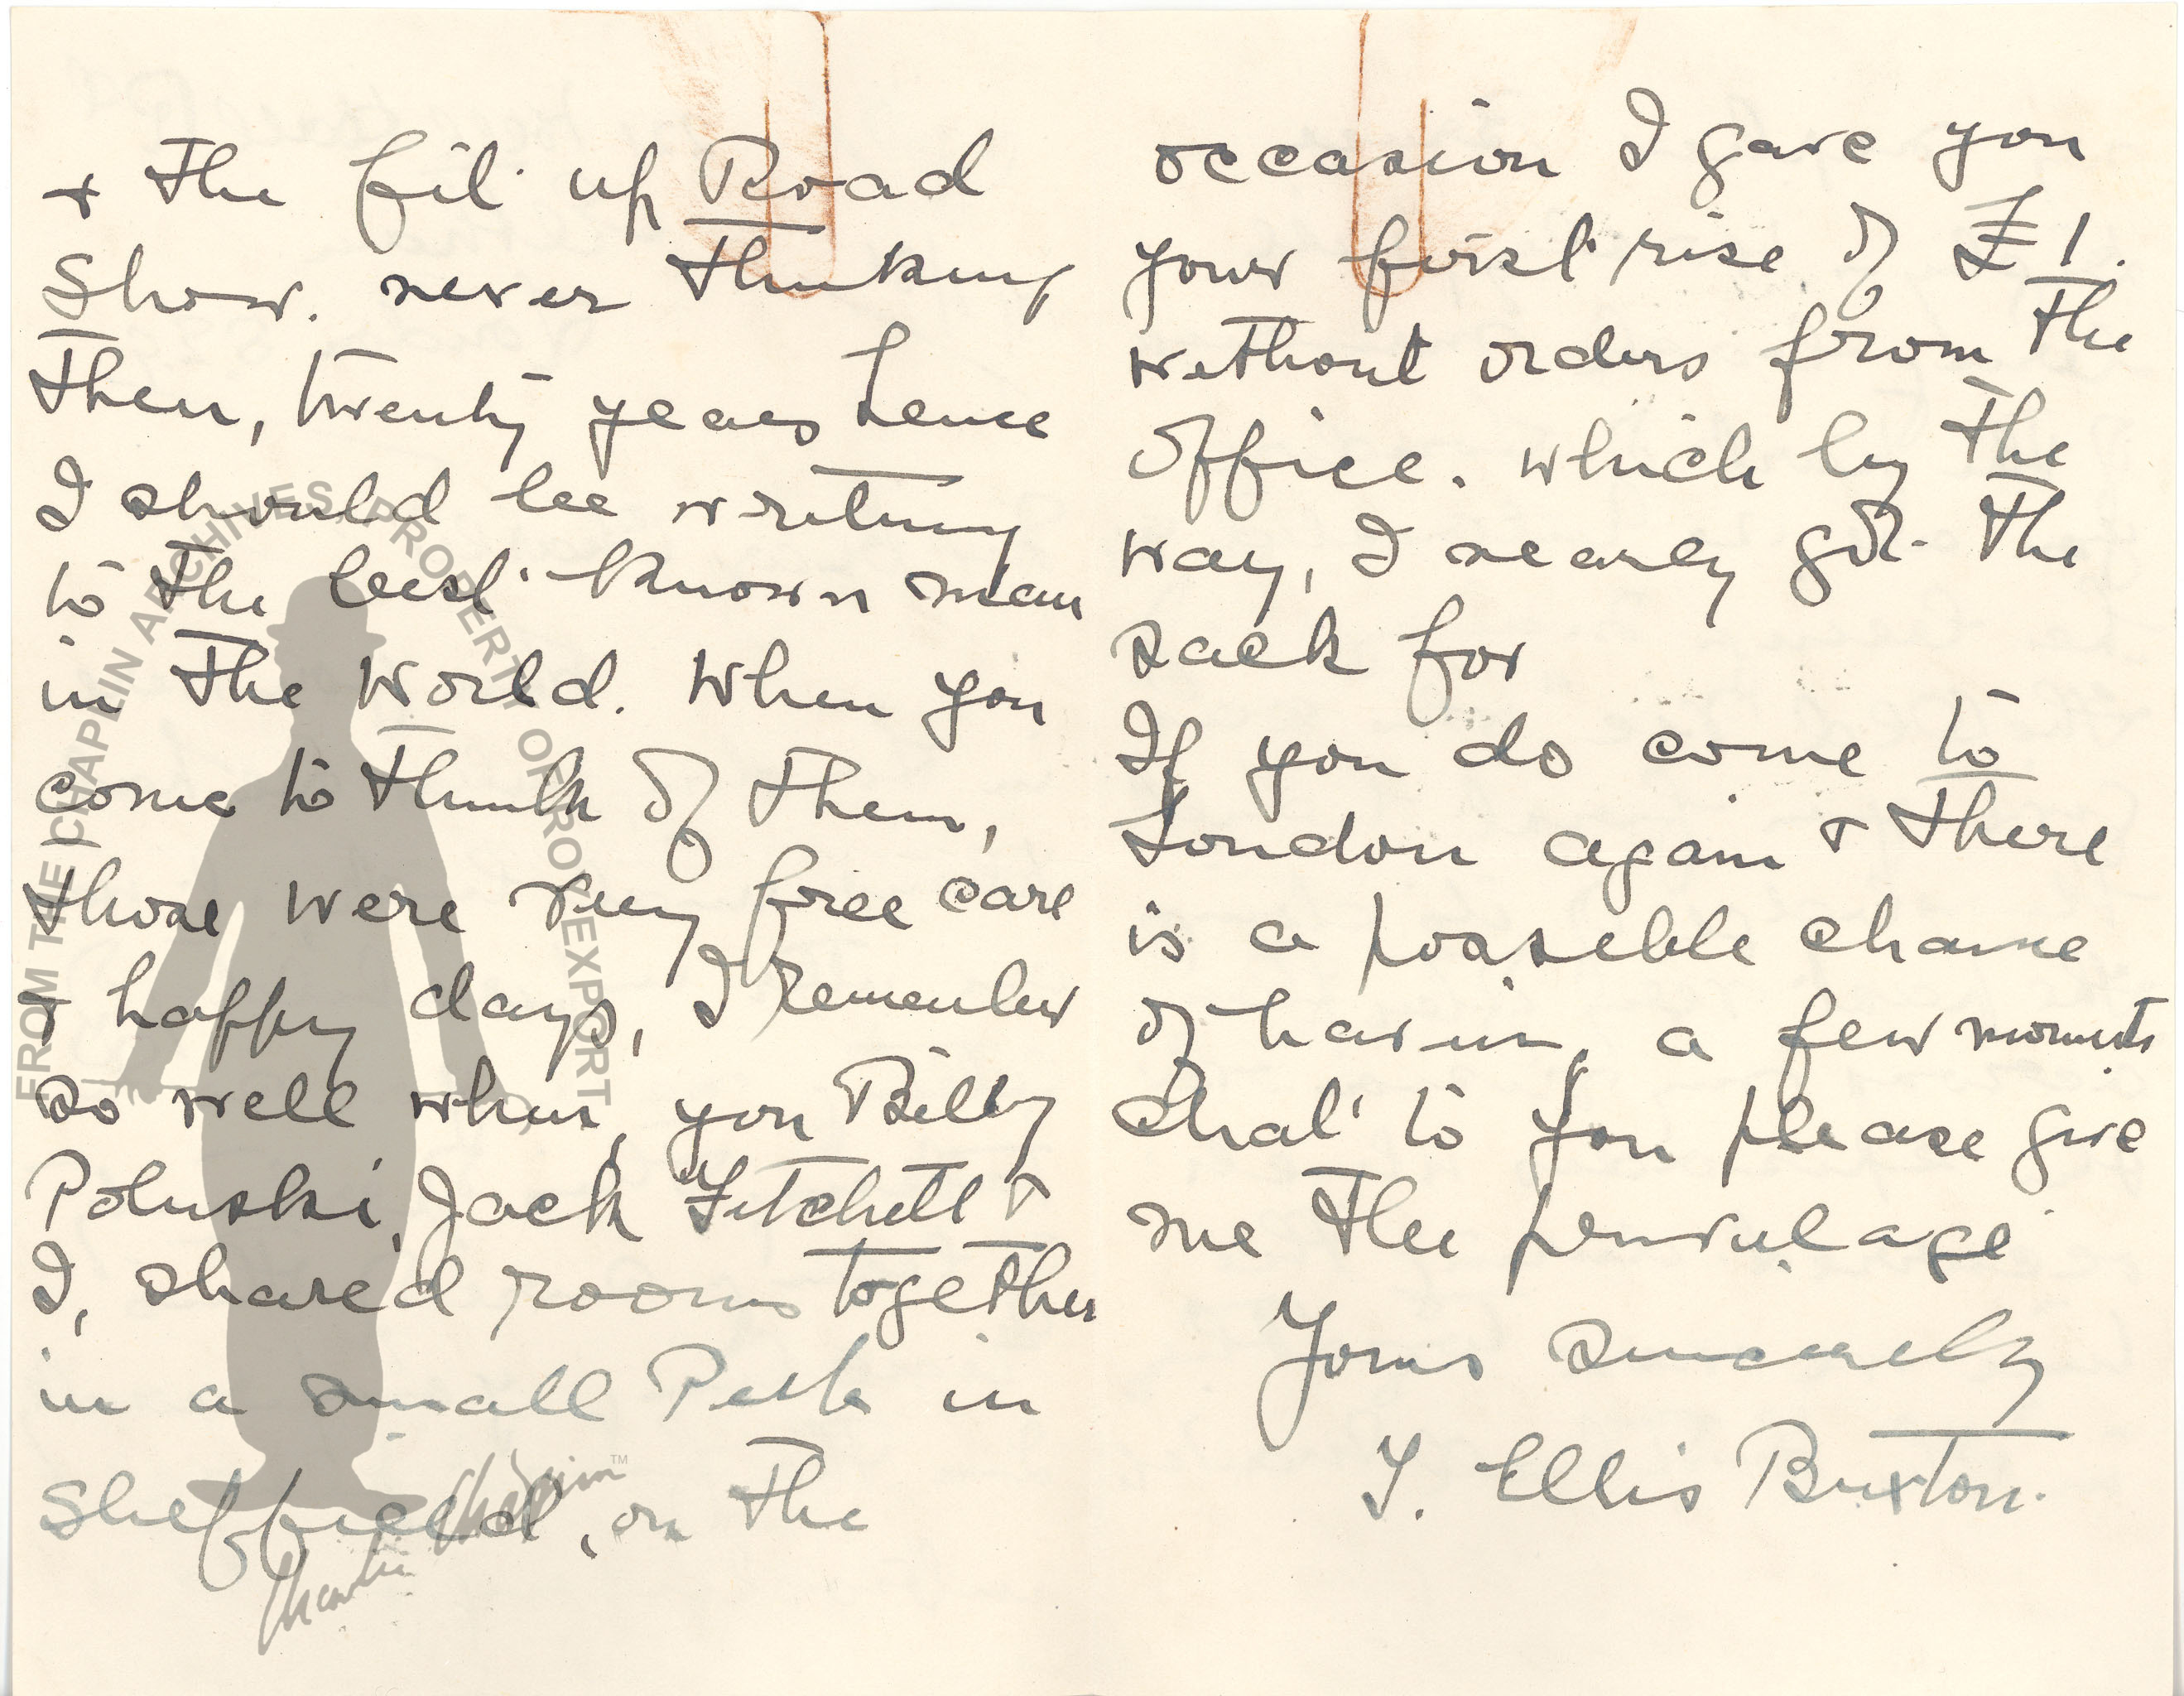 + the fit up Road
Show. never thinking
then, twenty years hence
I should be writing
to the best known man
in the world. When you
come to think of them,
those were very free care
& happy days, I remember
so well when, you Billy
Poluski, Jack Fitchett &
I, shared rooms together
in a small Pub in
Sheffield, on the
occasion I gave you
your first rise of £1.
without orders from the
office. which by the
way, I nearly got the
sack for
If you do come to
London again & there
is a possible chance
of having a few moments
chat to you please give
me the
Yours sincerely
Ellis Buxton.
FROM THE CHAPLIN ARCHIVES, PROPERTY OF ROY EXPORT
Charlie Chaplin™